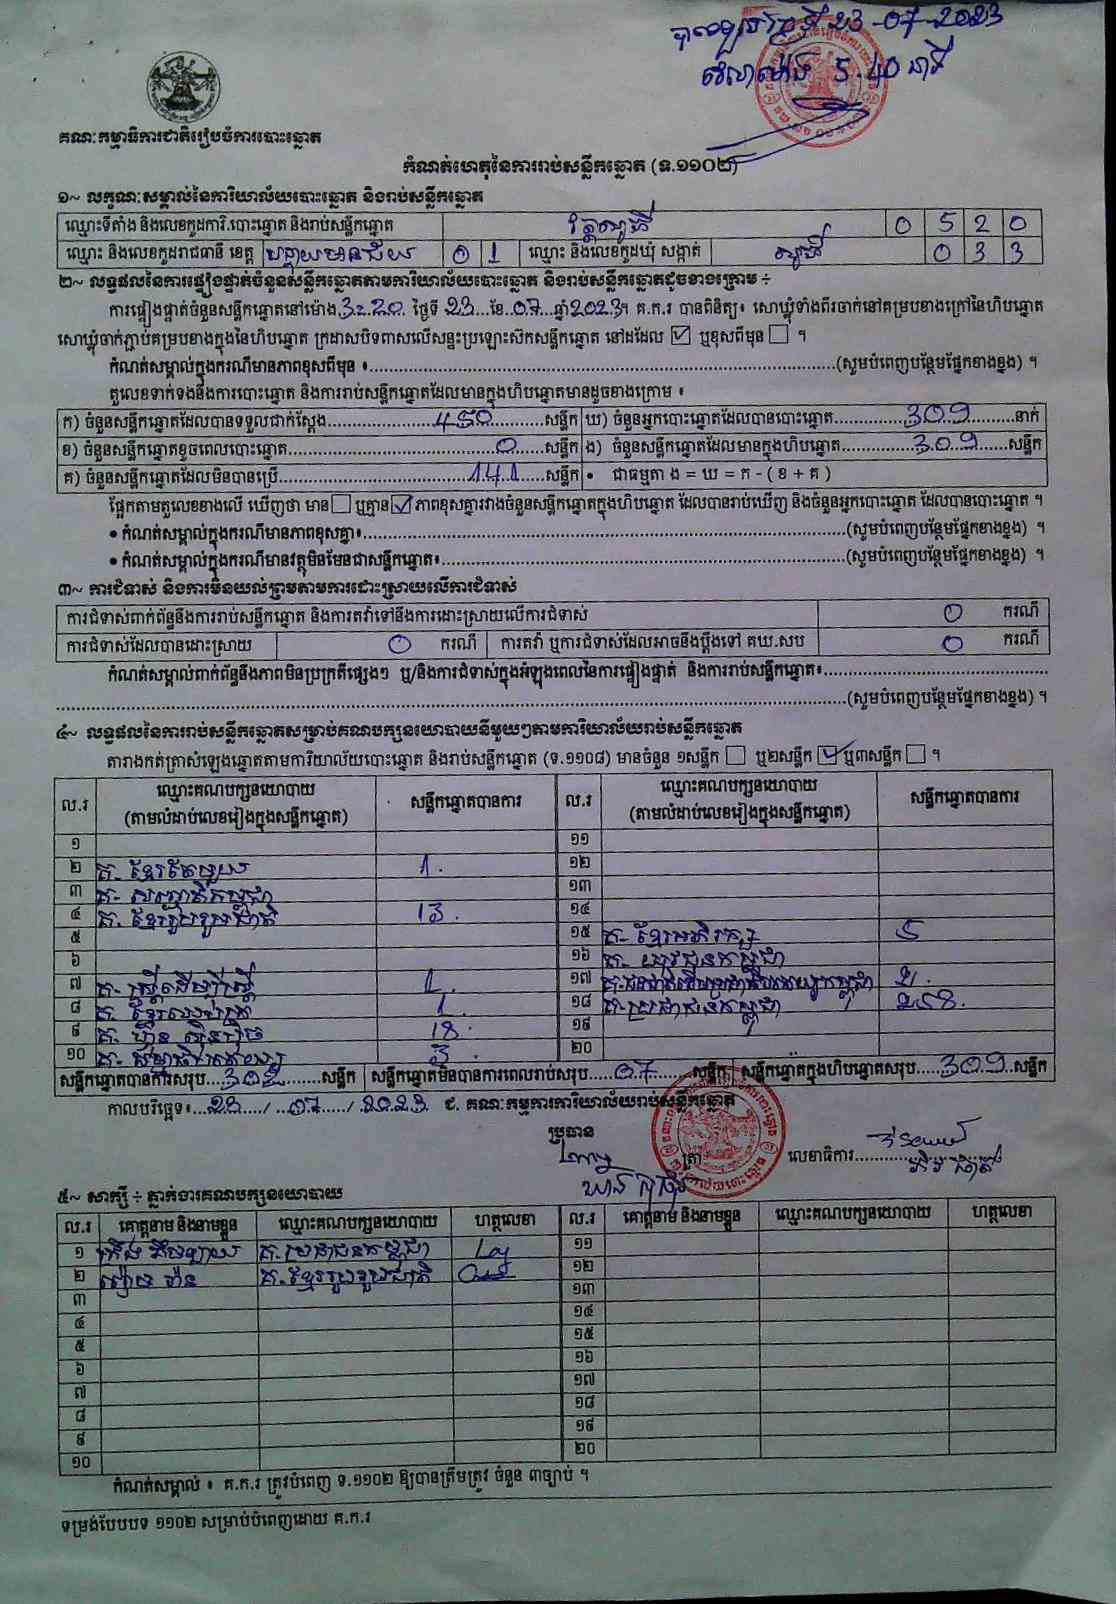 23-07-2023
5.40 នាទី
គណៈកម្មាធិការជាតិរៀបចំការបោះឆ្នោត
កំណត់ហេតុនៃការរាប់សន្លឹកឆ្នោត (ទ.១១០២)
១~ លក្ខណៈសម្គាល់នៃការិយាល័យបោះឆ្នោត និងរាប់សន្លឹកឆ្នោត
ឈ្មោះទីតាំង និងលេខកូដការិ.បោះឆ្នោត និងរាប់សន្លឹកឆ្នោត 0 5 2 0
ឈ្មោះ និងលេខកូដរាជធានី ខេត្ត បន្ទាយមានជ័យ 0 1 ឈ្មោះ និងលេខកូដឃុំ សង្កាត់ 0 3 3
២~ លទ្ធផលនៃការផ្ទៀងផ្ទាត់ចំនួនសន្លឹកឆ្នោតតាមការិយាល័យបោះឆ្នោត និងរាប់សន្លឹកឆ្នោតដូចខាងក្រោម ÷
ការផ្ទៀងផ្ទាត់ចំនួនសន្លឹកឆ្នោតនៅម៉ោង 3:20 ថ្ងៃទី 23 ខែ 07 ឆ្នាំ 2023។ គ.ក.រ បានពិនិត្យ៖ សោឃ្លុំទាំងពីរចាក់នៅគម្របខាងក្រៅនៃហិបឆ្នោត
សោឃ្លុំចាក់ភ្ជាប់គម្របខាងក្នុងនៃហិបឆ្នោត ក្រដាសបិទពាសលើសន្ទះប្រឡោះស៊កសន្លឹកឆ្នោត នៅដដែល ☑ ឬខុសពីមុន ☐ ។
កំណត់សម្គាល់ក្នុងករណីមានភាពខុសពីមុន ៖ (សូមបំពេញបន្ថែមផ្នែកខាងខ្នង) ។
តួលេខទាក់ទងនឹងការបោះឆ្នោត និងការរាប់សន្លឹកឆ្នោតដែលមានក្នុងហិបឆ្នោតមានដូចខាងក្រោម ៖
ក) ចំនួនសន្លឹកឆ្នោតដែលបានទទួលជាក់ស្តែង 450 សន្លឹក ឃ) ចំនួនអ្នកបោះឆ្នោតដែលបានបោះឆ្នោត 309 នាក់
ខ) ចំនួនសន្លឹកឆ្នោតខូចពេលបោះឆ្នោត 0 សន្លឹក ង) ចំនួនសន្លឹកឆ្នោតដែលមានក្នុងហិបឆ្នោត 309 សន្លឹក
គ) ចំនួនសន្លឹកឆ្នោតដែលមិនបានប្រើ 141 សន្លឹក • ជាធម្មតា ង = ឃ = ក - ( ខ + គ )
ផ្អែកតាមតួលេខខាងលើ ឃើញថា មាន ☐ ឬគ្មាន ☑ ភាពខុសគ្នារវាងចំនួនសន្លឹកឆ្នោតក្នុងហិបឆ្នោត ដែលបានរាប់ឃើញ និងចំនួនអ្នកបោះឆ្នោត ដែលបានបោះឆ្នោត ។
• កំណត់សម្គាល់ក្នុងករណីមានភាពខុសគ្នា៖ (សូមបំពេញបន្ថែមផ្នែកខាងខ្នង) ។
• កំណត់សម្គាល់ក្នុងករណីមានវត្ថុមិនមែនជាសន្លឹកឆ្នោត៖ (សូមបំពេញបន្ថែមផ្នែកខាងខ្នង) ។
៣~ ការជំទាស់ និងការមិនយល់ព្រមតាមការដោះស្រាយលើការជំទាស់
ការជំទាស់ពាក់ព័ន្ធនឹងការរាប់សន្លឹកឆ្នោត និងការតវ៉ាទៅនឹងការដោះស្រាយលើការជំទាស់ 0 ករណី
ការជំទាស់ដែលបានដោះស្រាយ 0 ករណី ការតវ៉ា ឬការជំទាស់ដែលអាចនឹងប្តឹងទៅ គឃ.សប 0 ករណី
កំណត់សម្គាល់ពាក់ព័ន្ធនឹងភាពមិនប្រក្រតីផ្សេងៗ ឬ/និងការជំទាស់ក្នុងអំឡុងពេលនៃការផ្ទៀងផ្ទាត់ និងការរាប់សន្លឹកឆ្នោត៖
(សូមបំពេញបន្ថែមផ្នែកខាងខ្នង) ។
៤~ លទ្ធផលនៃការរាប់សន្លឹកឆ្នោតសម្រាប់គណបក្សនយោបាយនីមួយៗតាមការិយាល័យរាប់សន្លឹកឆ្នោត
តារាងកត់ត្រាសំឡេងឆ្នោតតាមការិយាល័យបោះឆ្នោត និងរាប់សន្លឹកឆ្នោត (ទ.១១០៨) មានចំនួន ១សន្លឹក ☐ ឬ២សន្លឹក ☑ ឬ៣សន្លឹក ☐ ។
ល.រ ឈ្មោះគណបក្សនយោបាយ (តាមលំដាប់លេខរៀងក្នុងសន្លឹកឆ្នោត) សន្លឹកឆ្នោតបានការ ល.រ ឈ្មោះគណបក្សនយោបាយ (តាមលំដាប់លេខរៀងក្នុងសន្លឹកឆ្នោត) សន្លឹកឆ្នោតបានការ
១ ១១
២ គ- ខ្មែរតែមួយ 1. ១២
៣ គ- សញ្ជាតិកម្ពុជា ១៣
៤ គ- ខ្មែររួបរួមជាតិ 13. ១៤
៥ ១៥ គ- ខ្មែរអភិរក្ស 5
៦ ១៦ គ- យុវជនកម្ពុជា
៧ គ- ស្ត្រីដើម្បីស្ត្រី 1. ១៧ 2.
៨ 1. ១៨ គ-ប្រជាជនកម្ពុជា 258.
៩ គ- ហ្វ៊ុនស៊ិនប៉ិច 18. ១៩
១០ 3. ២០
សន្លឹកឆ្នោតបានការសរុប 302 សន្លឹក សន្លឹកឆ្នោតមិនបានការពេលរាប់សរុប 07 សន្លឹក សន្លឹកឆ្នោតក្នុងហិបឆ្នោតសរុប 309 សន្លឹក
កាលបរិច្ឆេទ៖ 23 / 07 / 2023 ជ. គណៈកម្មការការិយាល័យរាប់សន្លឹកឆ្នោត
ប្រធាន
ត្រា លេខាធិការ
៥~ សាក្សី ÷ ភ្នាក់ងារគណបក្សនយោបាយ
ល.រ គោត្តនាម និងនាមខ្លួន ឈ្មោះគណបក្សនយោបាយ ហត្ថលេខា ល.រ គោត្តនាម និងនាមខ្លួន ឈ្មោះគណបក្សនយោបាយ ហត្ថលេខា
១ គ.ប្រជាជនកម្ពុជា ១១
២ គ.ខ្មែររួបរួមជាតិ ១២
៣ ១៣
៤ ១៤
៥ ១៥
៦ ១៦
៧ ១៧
៨ ១៨
៩ ១៩
១០ ២០
កំណត់សម្គាល់ ៖ គ.ក.រ ត្រូវបំពេញ ទ.១១០២ ឱ្យបានត្រឹមត្រូវ ចំនួន ៣ច្បាប់ ។
ទម្រង់បែបបទ ១១០២ សម្រាប់បំពេញដោយ គ.ក.រ